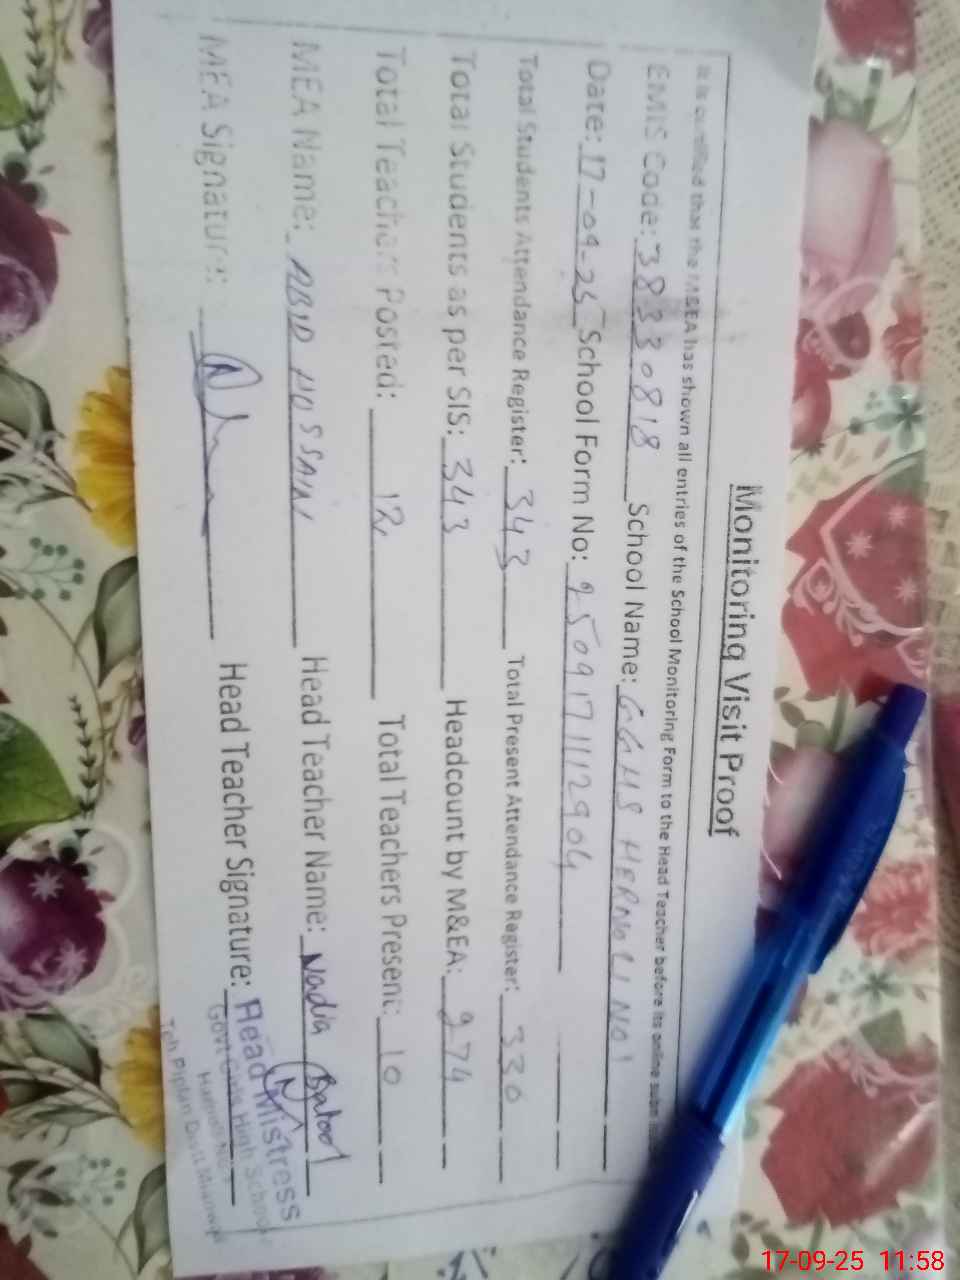 Monitoring Visit Proof
It is certified that the M&EA has shown all entries of the School Monitoring Form to the Head Teacher before its online
EMIS Code: 38330818 School Name: GGHS HERNOLI NO1
Date: 17-09-25 School Form No: 2509171112904
Total Students Attendance Register: 343 Total Present Attendance Register: 330
Total Students as per SIS: 343 Headcount by M&EA: 274
Total Teachers Posted: 12 Total Teachers Present: 10
MEA Name: ABID HUSSAIN Head Teacher Name: Nadia Batool
MEA Signature: Head Teacher Signature:
Head Mistress
Govt Girls High School
Teh Piplan Distt Mianwali
17-09-25 11:58